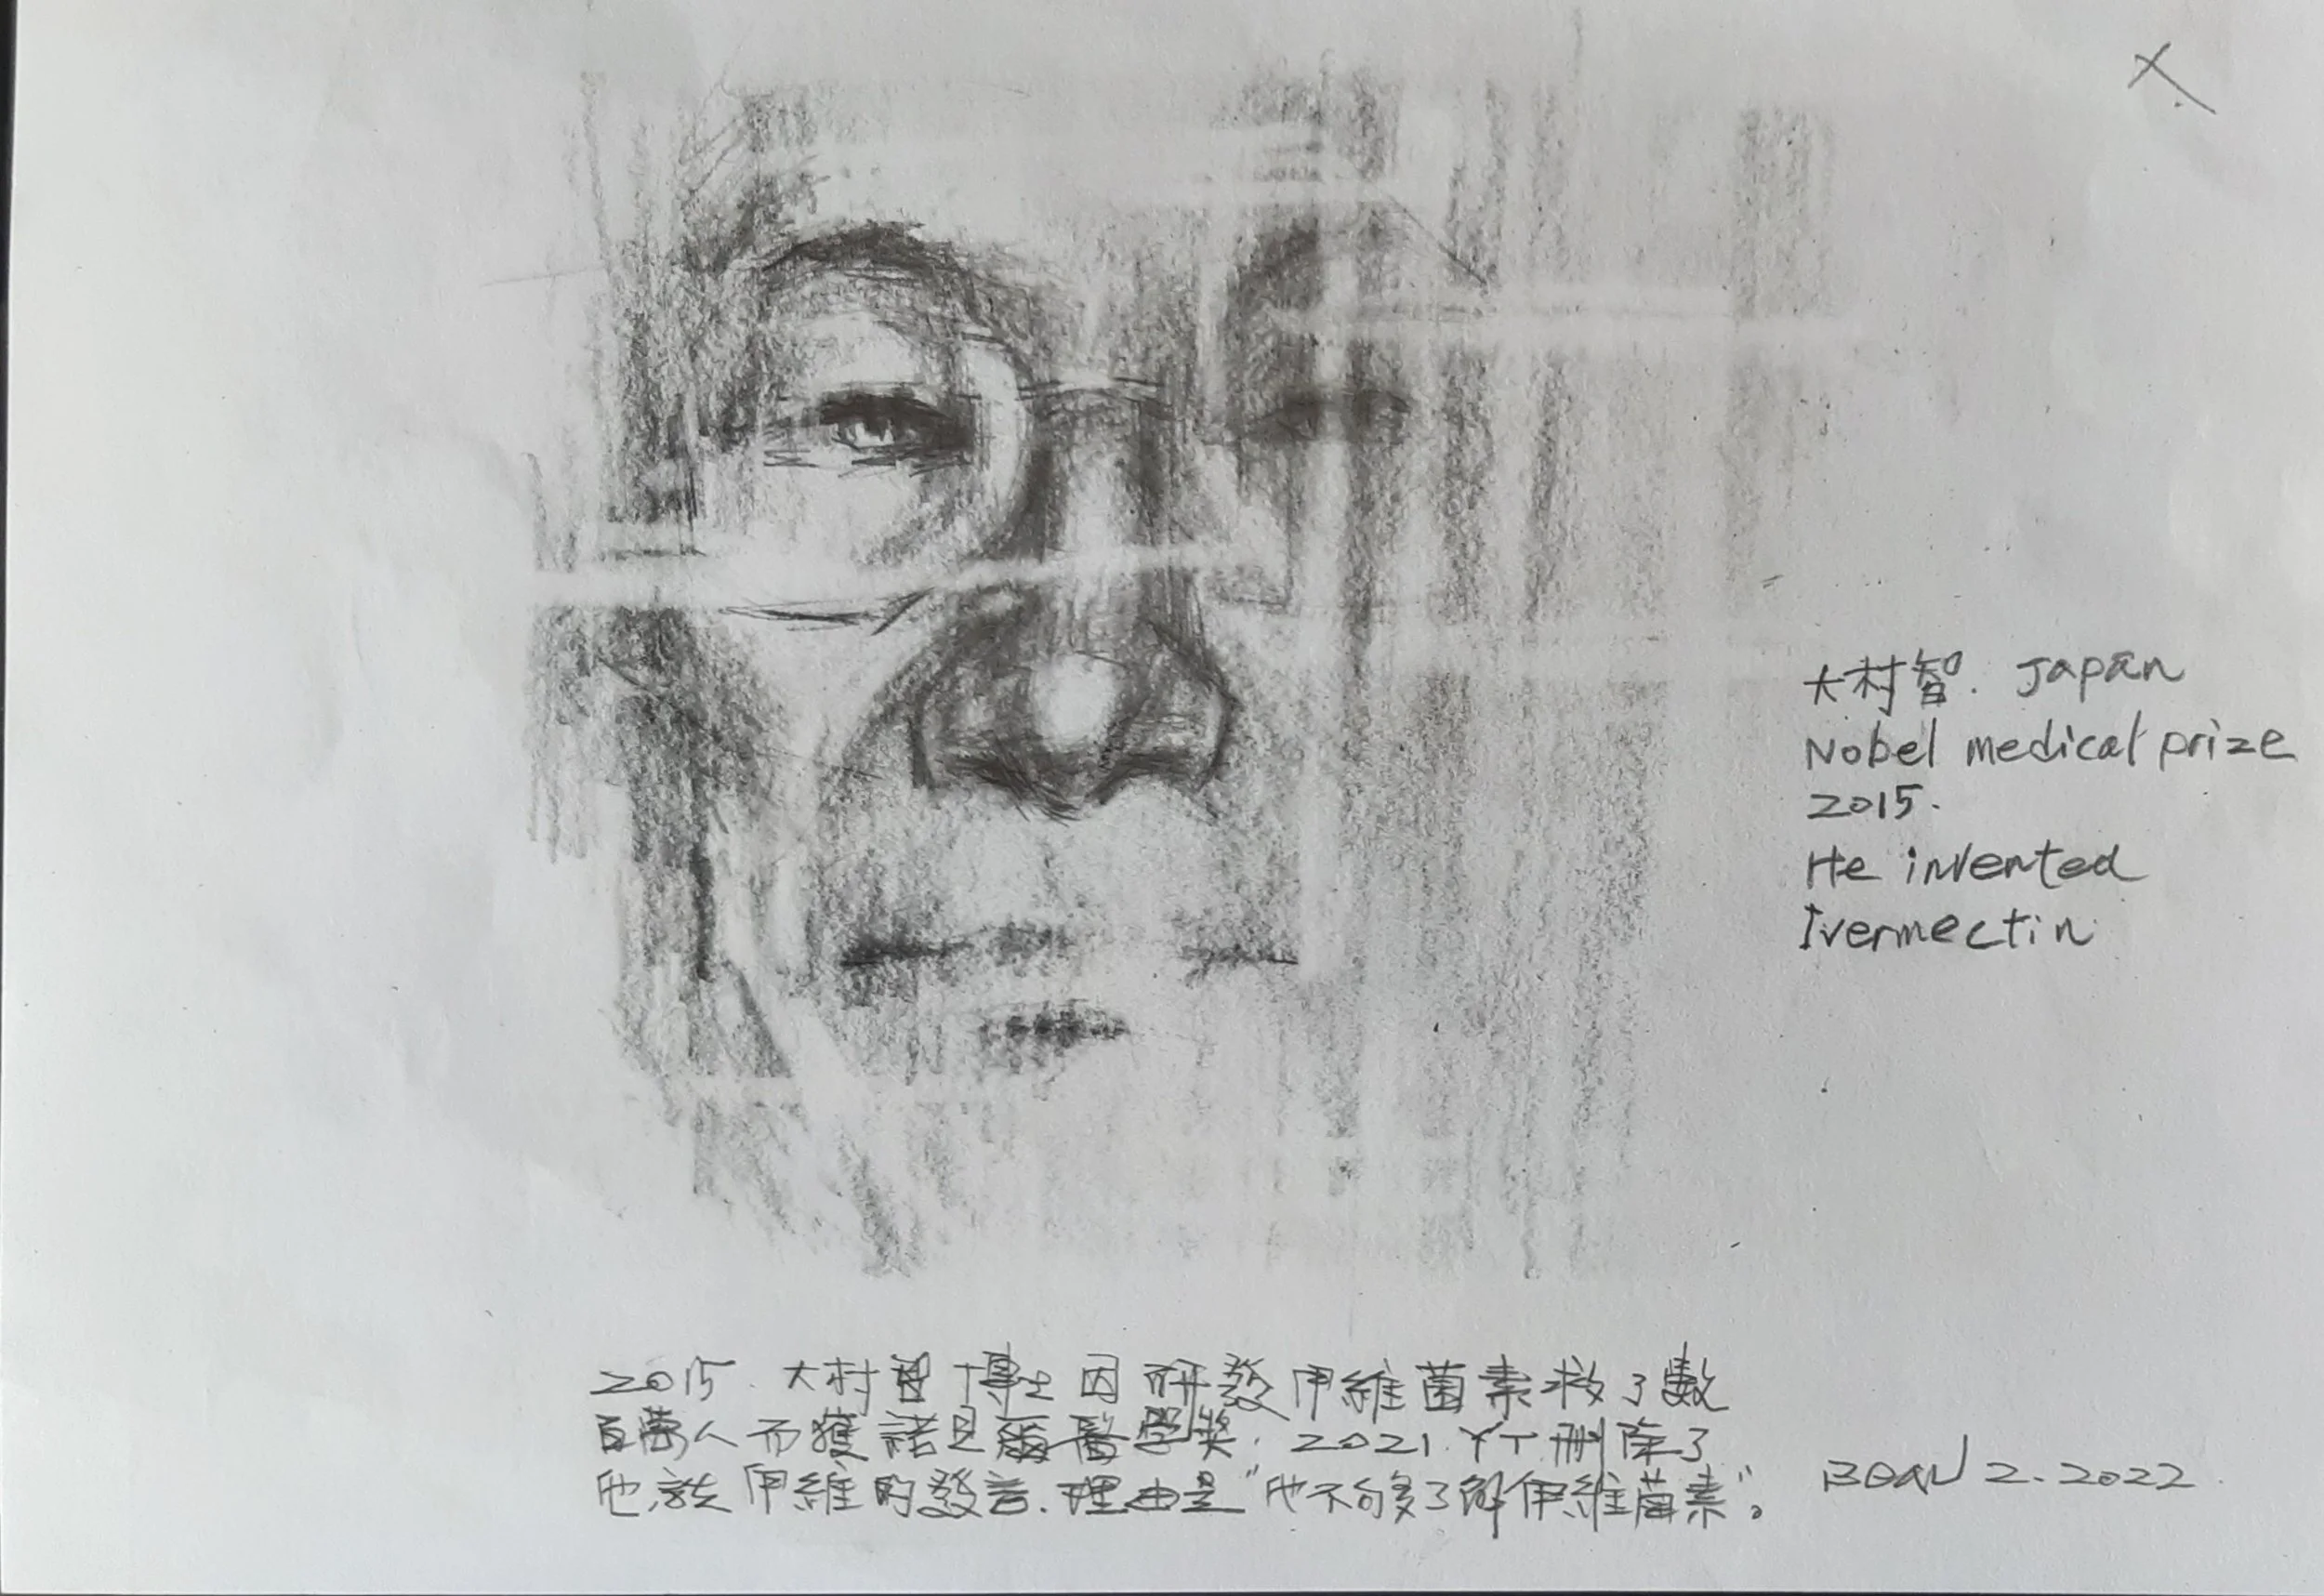 大村智. Japan
Nobel medical prize
2015.
He invented
Ivermectin
2015. 大村智博士因研發伊維菌素救了數
百萬人而獲諾貝爾醫學獎. 2021. YT刪除了
他談伊維的發言. 理由是"他不夠了解伊維菌素"。
BEAN 2.2022.